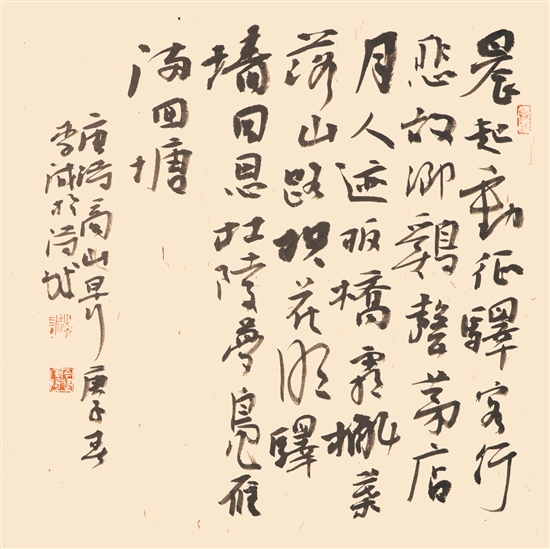 晨起動征驛客行
悲故鄉鷄聲茅店
月人迹板橋霜槲葉
落山路枳花明驛
墻因思杜陵夢鳧雁
滿回塘
唐詩商山早行 庚子春
李 於